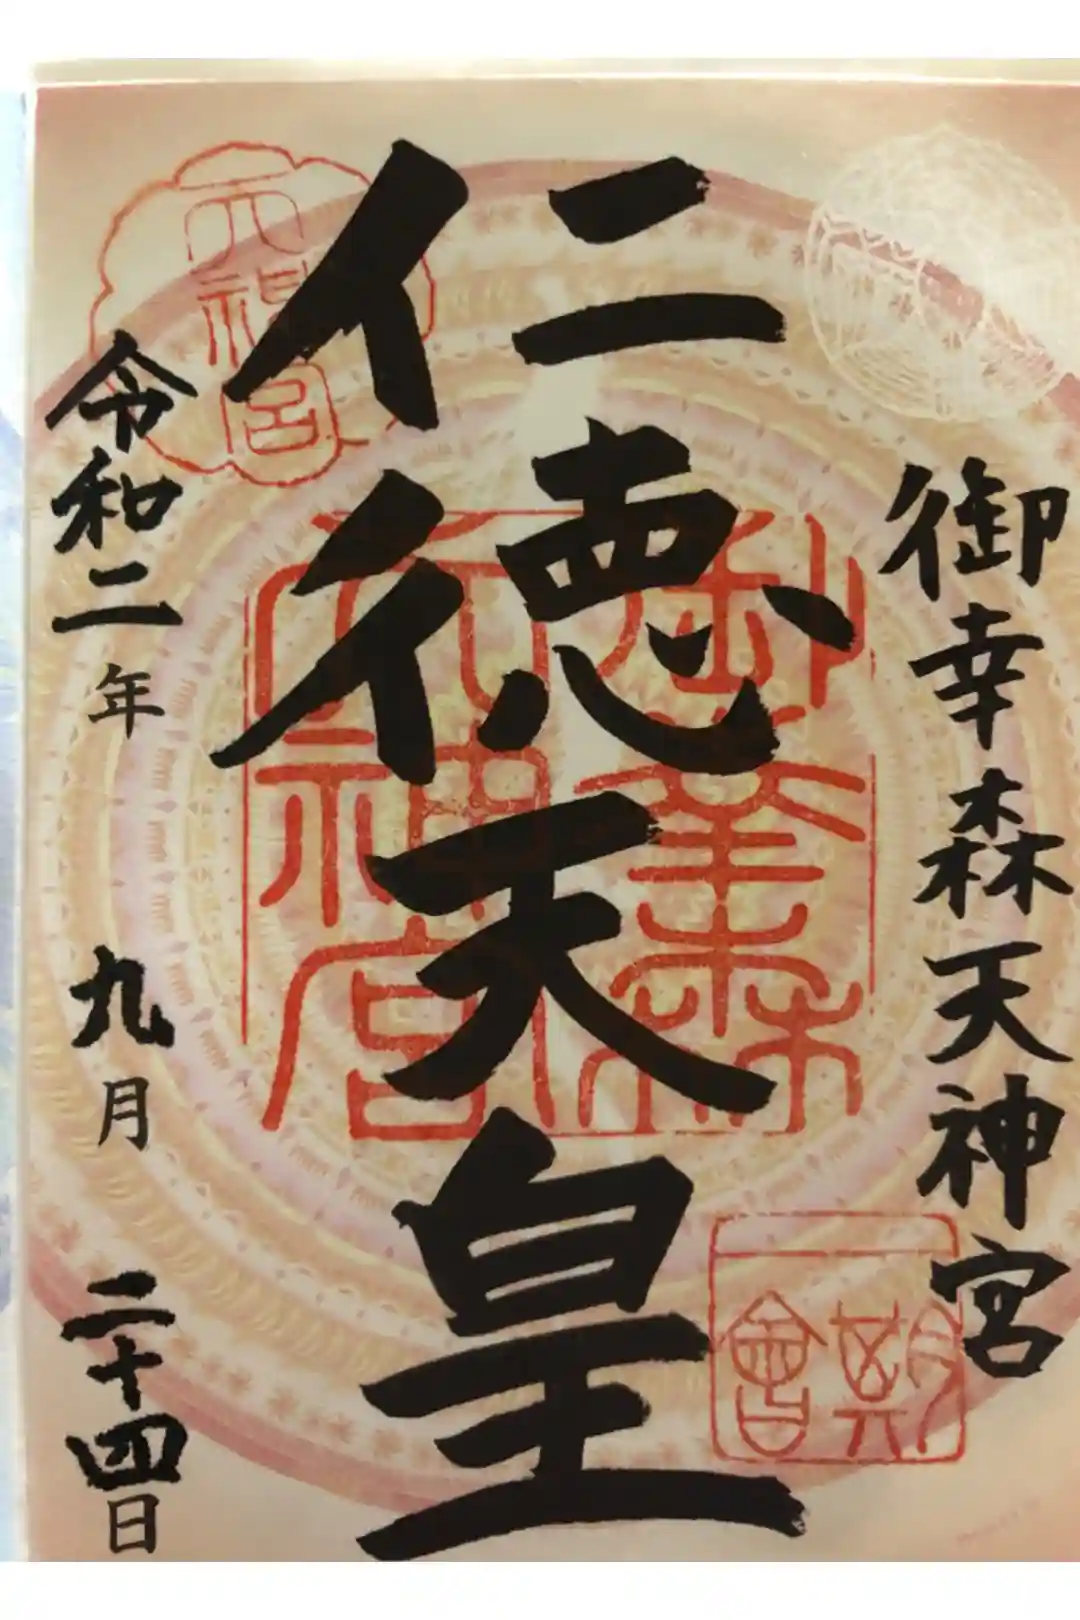 御幸森天神宮
仁徳天皇
令和二年九月二十四日
御幸森
天神宮